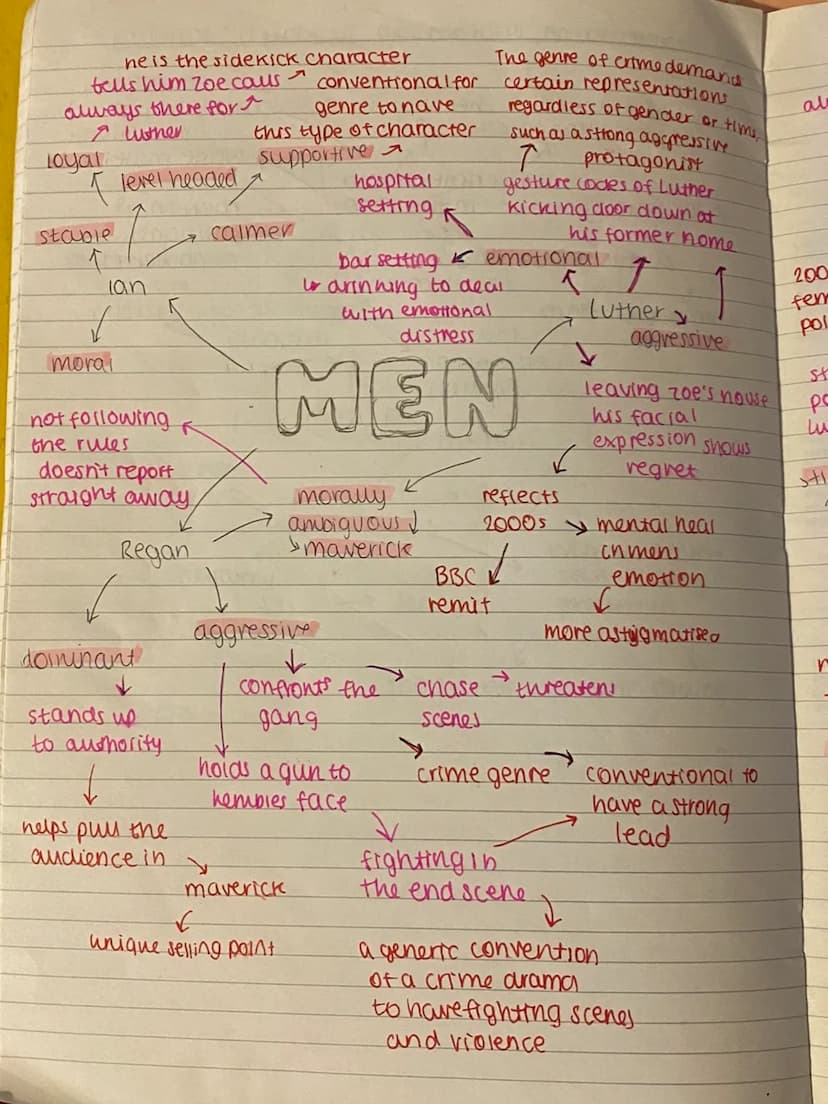 he is the sidekick character
tells him zoe calls
always there for
luther
conventional for
genre to have
this type of character
The genre of crime demand
certain representations
regardless of gender or time,
such as a strong aggressive
protagonist
loyal
level headed
supportive
stable
calmer
ian
moral
hospital
setting
gesture codes of Luther
kicking door down at
his former home
bar setting
emotional
drinning to deal
with emotional
distress
luther
aggressive
MEN
leaving zoe's house
his facial
expression shows
regret
not following
the rules
doesn't report
straight away
morally
ambiguous
maverick
reflects
2000s
mental heal
in mens
emotion
more astigmatised
BBC
remit
Regan
dominant
aggressive
stands up
to authority
confronts the
gang
chase
scenes
threatens
holds a gun to
kembles face
crime genre
conventional to
have a strong
lead
helps pull the
audience in
maverick
unique selling point
fighting in
the end scene
a generic convention
of a crime drama
to have fighting scenes
and violence
al
200
fem
pol
st
po
lu
sti